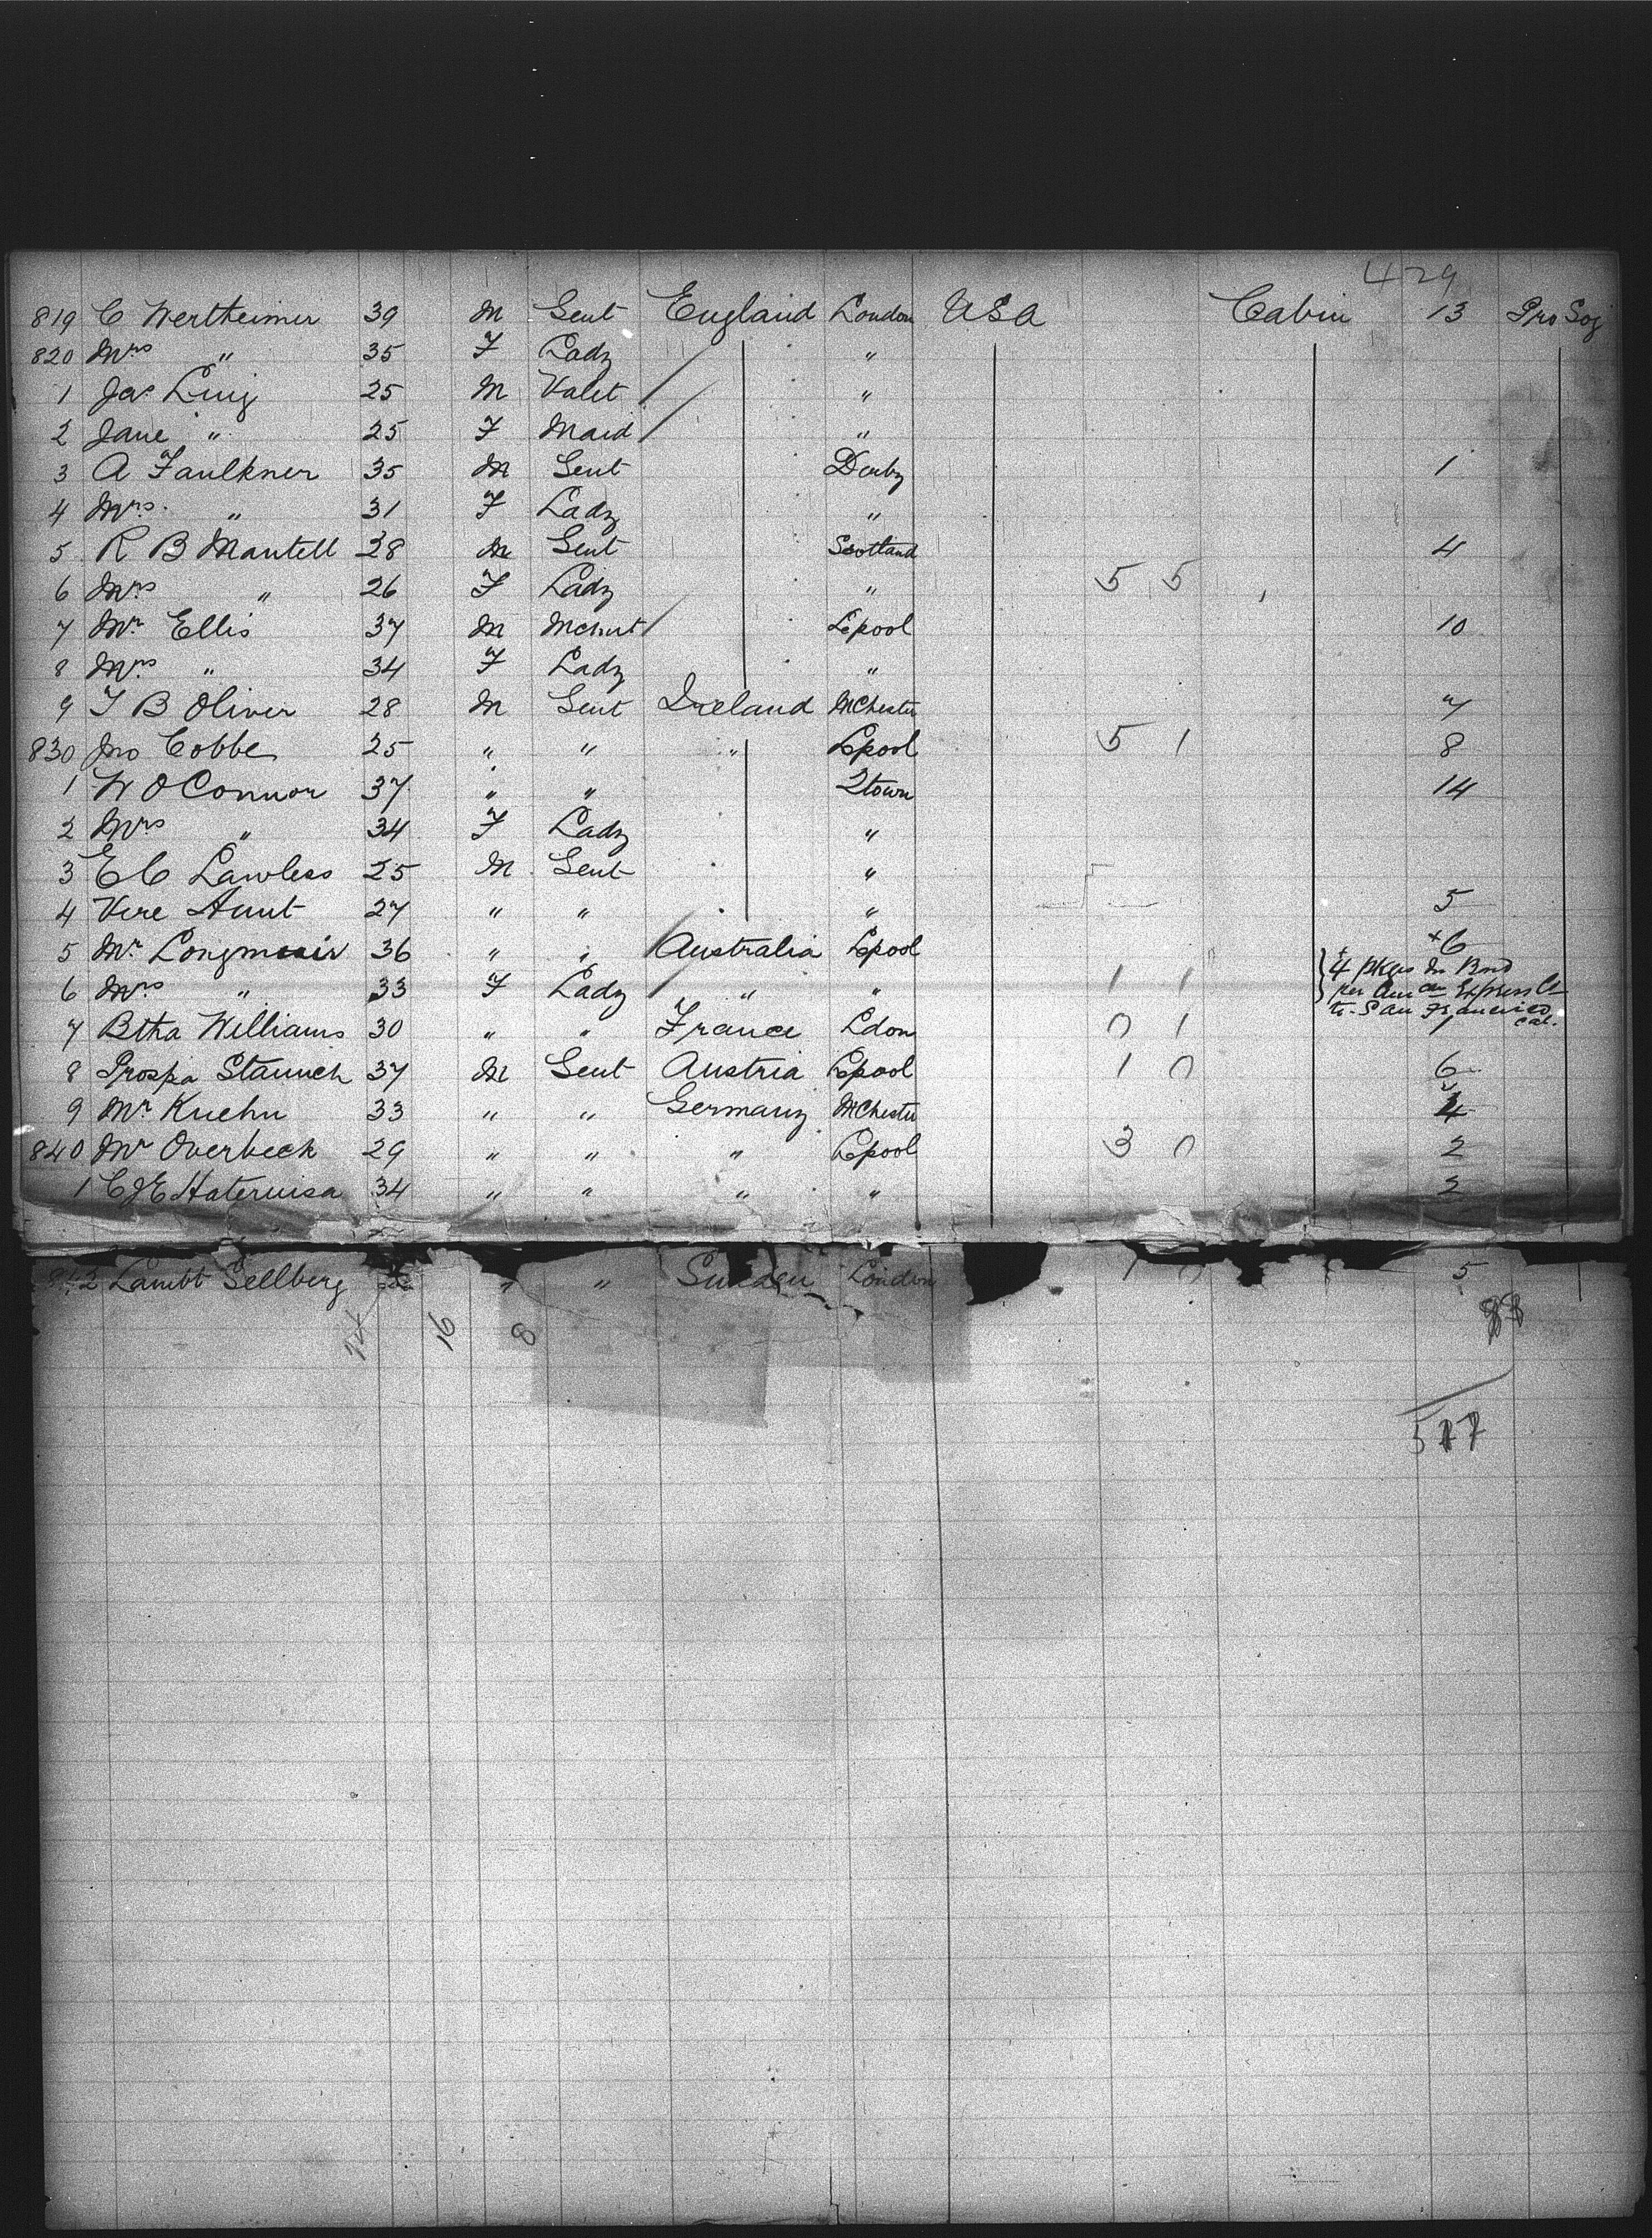 429
819 C Wertheimer 39 M Gent England London USA Cabin 13 Pro Soj
820 Mrs " 35 F Lady "
1 Jas Luig 25 M Valet "
2 Jane " 25 F Maid "
3 A Faulkner 35 M Gent Derby 1
4 Mrs. " 31 F Lady "
5 R B Mantell 28 M Gent Scotland 4
6 Mrs " 26 F Lady " 5 5
7 Mr Ellis 37 M Mchnt Lpool 10
8 Mrs " 34 F Lady "
9 T B Oliver 28 M Gent Ireland MChester 7
830 Jno Cobbe 25 " " " Lpool 5 1 8
1 W O Connor 37 " " Qtown 14
2 Mrs " 34 F Lady "
3 E C Lawless 25 M Gent "
4 Vere Hunt 27 " " " 5
5 Mr Longmuir 36 " " Australia Lpool +6
6 Mrs " 33 F Lady " " 1 1 + 4 pkgs In Bnd
per Amcan Express Co
to San Francisco
cal.
7 Btha Williams 30 " " France Ldon 0 1 1
8 Prospa Staunch 37 M Gent Austria Lpool 1 0 6
9 Mr Kuehn 33 " " Germany MChester 4
840 Mr Overbeck 29 " " " Lpool 3 0 2
1 34 " " " " 2
842 Lambt Sellberg " " Sweden London 1 0 5
24 16 8 88